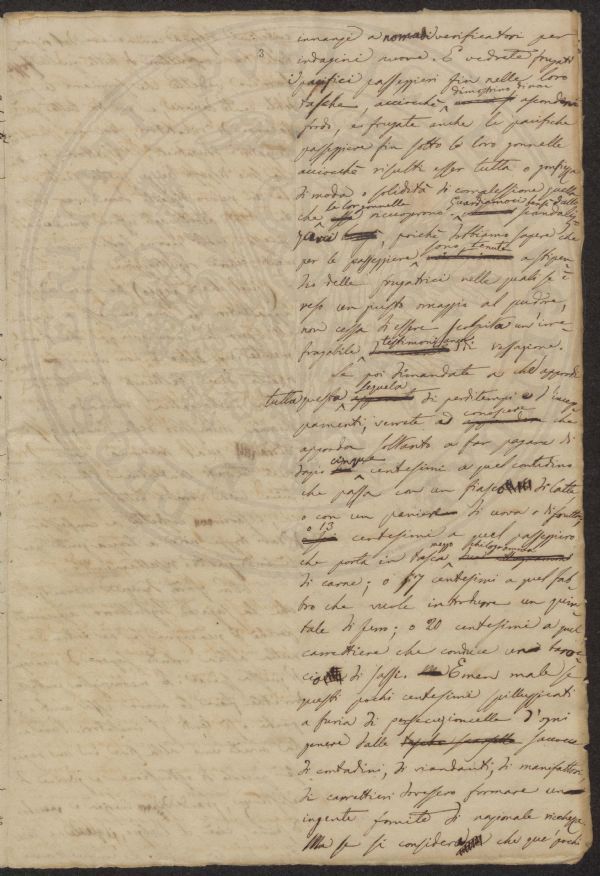 3
innanzi a nomadi verificatori per
indagini nuove. E vedrete frugati
i pacifici passeggieri fin nelle loro
tasche, acciocchè dimostrino di non ascondere
frodo, e frugate anche le pacifiche
passeggiere fin sotto le loro gonnelle
acciocchè risulti esser tutta o gonfiezza
di moda o solidità di complessione quello
che le lor gonnelle ricuoprono. Guardiamoci però dallo scandaliz-
zarci, poichè dobbiamo sapere che
per le passeggiere sono tenute a stipen
dio delle frugatrici nelle quali se è
reso un giusto omaggio al pudore,
non cessa di essere scolpita un'irre
fragabile testimonianza di vessazione.
Se poi dimandate a che approdi
tutta questa sequela di perditempi e d'incep
pamenti, verrete a conoscere che
approda soltanto a far pagare di
dazio cinque centesimi a quel contadino
che passa con un fiasco di latte
o con un paniere di uova o di frutta;
o 13 centesimi a quel passeggiero
che porta in tasca mezzo chilogramma
di carne; o 57 centesimi a quel fab
bro che vuole introdurre un quin
tale di ferro; o 20 centesimi a quel
carrettiere che conduce un baroc
cio di sassi. E men male se
questi pochi centesimi piluccati
a furia di persecuzioncelle d'ogni
genere dalle saccocce
di contadini, di viandanti, di manifattori
di carrettieri dovessero formare un
ingente fomite di nazionale ricchezza
Ma se si considera che que' pochi